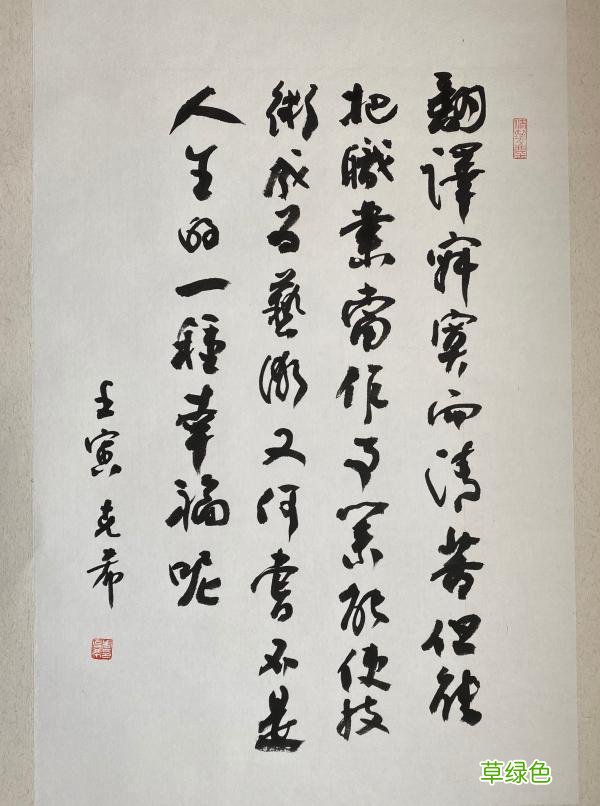 翻譯寂寞而清苦但能
把職業當作事業能使技
術成为藝術又何嘗不是
人生的一種幸福呢
壬寅 克希
草绿色